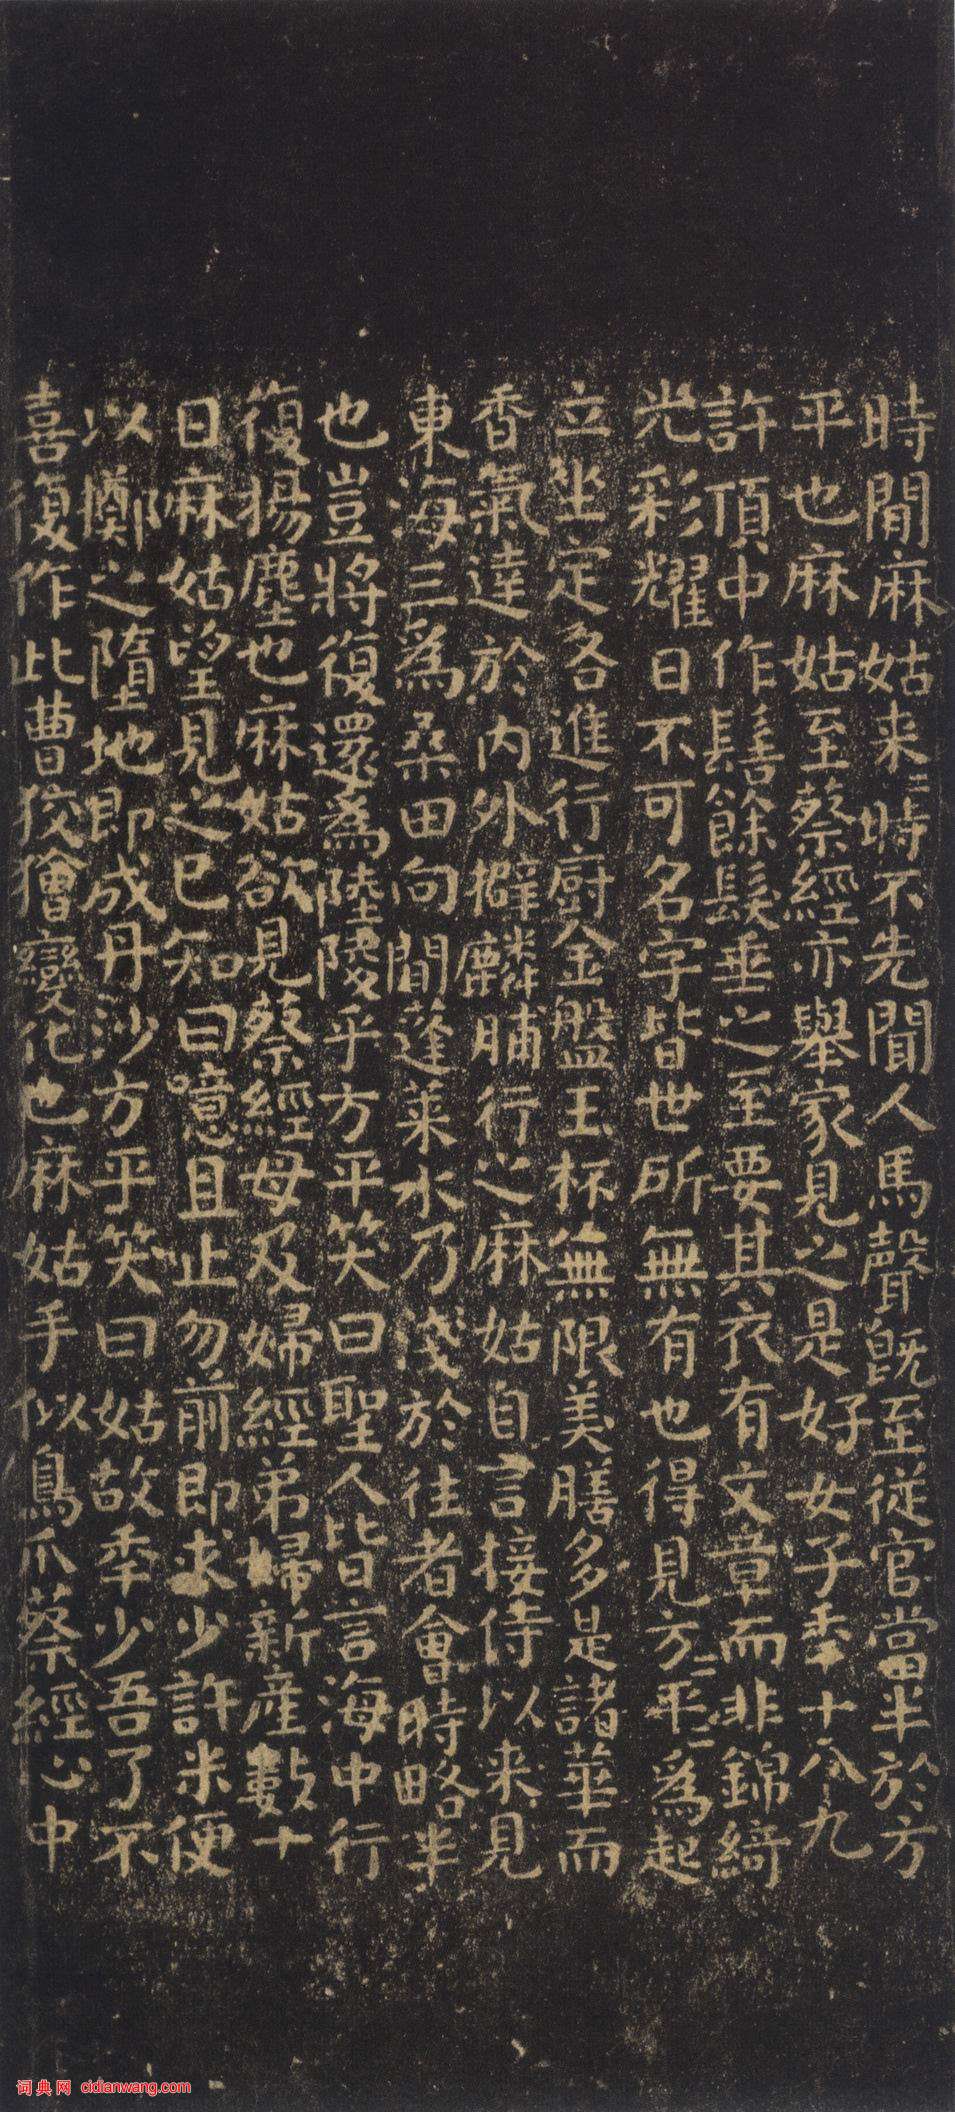 時閒麻姑来二時不先聞人馬聲既至從官當半於方
平也麻姑至蔡經亦舉家見之是好女子秊十八九
許頂中作髻餘髮垂之至要其衣有文章而非錦綺
光彩耀日不可名字皆世所無有也得見方平二二爲起
立坐定各進行廚金盤玉杯無限美膳多是諸華而
香氣達於內外擗麟脯行之麻姑自言接侍以来見
東海三爲桑田向閒蓬莱水乃淺於往者會時略半
也豈將復還爲陸陵乎方平笑曰聖人皆言海中行
復揚塵也麻姑欲見蔡經母及婦經弟婦新産數十
日麻姑望見之已知曰噫且止勿前即求少許米便
以擲之墮地即成丹沙方平笑曰姑故秊少吾了不
喜復作此曹狡獪變化也麻姑手似鳥爪蔡經心中
词典网 cidianwang.com